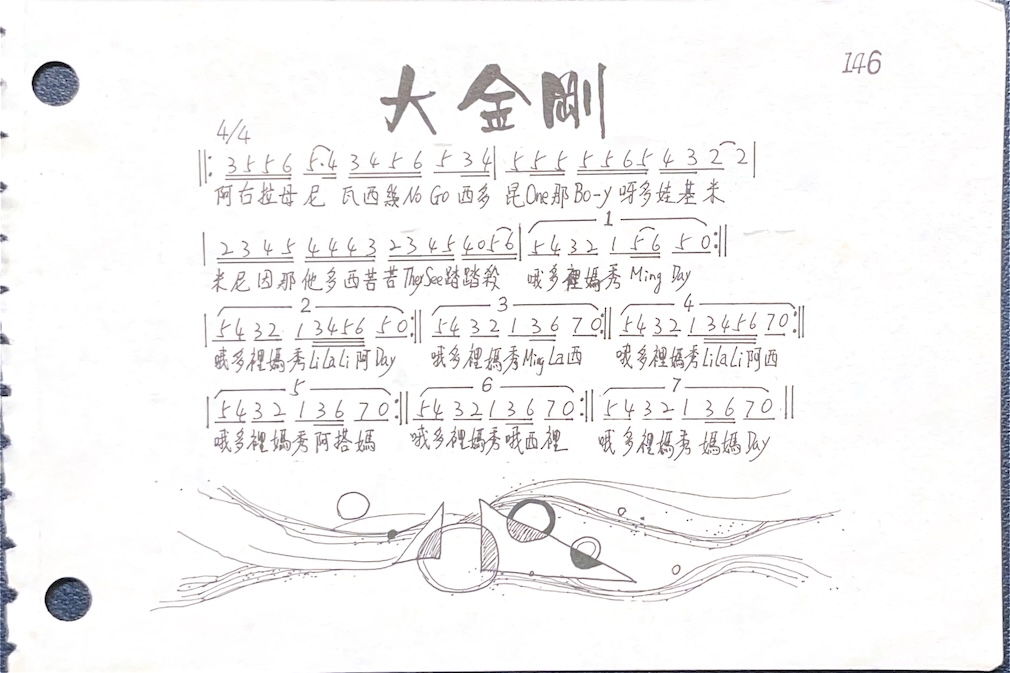 146
大金剛
4/4
||: 3556 5·4 3456 534 | 555 5565 4322 |
阿右拉母尼 瓦西煞No Go西多 昆One那Bo-y呀多娃基米
| 2345 4443 2345 4056 | 1 5432 156 50 :||
米尼因那他多西苦苦They See踏踏殺 哦多裡媽秀Ming Day
| 2 5432 13456 50 :|| 3 5432 136 70 :|| 4 5432 13456 70 :||
哦多裡媽秀LiLaLi阿Day 哦多裡媽秀Ming La西 哦多裡媽秀LiLaLi阿西
| 5 5432 136 70 :|| 6 5432 136 70 :|| 7 5432 136 70 ||
哦多裡媽秀阿搭媽 哦多裡媽秀哦西裡 哦多裡媽秀媽媽Day